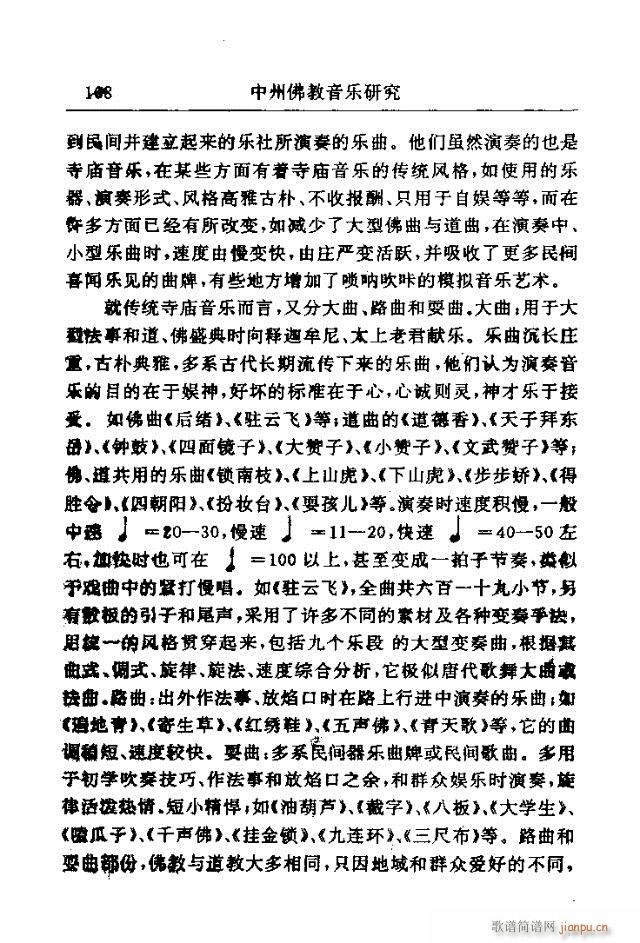 108 中州佛教音乐研究
到民间并建立起来的乐社所演奏的乐曲。他们虽然演奏的也是
寺庙音乐,在某些方面有着寺庙音乐的传统风格,如使用的乐
器、演奏形式、风格高雅古朴、不收报酬、只用于自娱等等,而在
许多方面已经有所改变,如减少了大型佛曲与道曲,在演奏中、
小型乐曲时,速度由慢变快,由庄严变活跃,并吸收了更多民间
喜闻乐见的曲牌,有些地方增加了唢呐吹咔的模拟音乐艺术。
就传统寺庙音乐而言,又分大曲、路曲和耍曲。大曲:用于大
型法事和道、佛盛典时向释迦牟尼、太上老君献乐。乐曲沉长庄
重,古朴典雅,多系古代长期流传下来的乐曲,他们认为演奏音
乐的目的在于娱神,好坏的标准在于心,心诚则灵,神才乐于接
受。如佛曲《后绪》、《驻云飞》等;道曲的《道德香》、《天子拜东
岳》、《钟鼓》、《四面镜子》、《大赞子》、《小赞子》、《文武赞子》等;
佛、道共用的乐曲《锁南枝》、《上山虎》、《下山虎》、《步步娇》、《得
胜令》、《四朝阳》、《扮妆台》、《耍孩儿》等。演奏时速度积慢,一般
中速 ♩ =20—30,慢速 ♩ =11—20,快速 ♩ =40—50左
右,加快时也可在 ♩ =100以上,甚至变成一拍子节奏,类似
于戏曲中的紧打慢唱。如《驻云飞》,全曲共六百一十九小节,另
有散板的引子和尾声,采用了许多不同的素材及各种变奏手法,
用统一的风格贯穿起来,包括九个乐段 的大型变奏曲,根据其
曲式、调式、旋律、旋法、速度综合分析,它极似唐代歌舞大曲或
法曲。路曲:出外作法事、放焰口时在路上行进中演奏的乐曲;如
《遍地青》、《寄生草》、《红绣鞋》、《五声佛》、《青天歌》等,它的曲
调稍短、速度较快。耍曲:多系民间器乐曲牌或民间歌曲。多用
于初学吹奏技巧、作法事和放焰口之余,和群众娱乐时演奏,旋
律活泼热情、短小精悍;如《油葫芦》、《戴字》、《八板》、《大学生》、
《嗑瓜子》、《千声佛》、《挂金锁》、《九连环》、《三尺布》等。路曲和
耍曲部份,佛教与道教大多相同,只因地域和群众爱好的不同,
歌谱简谱网
jianpu.cn